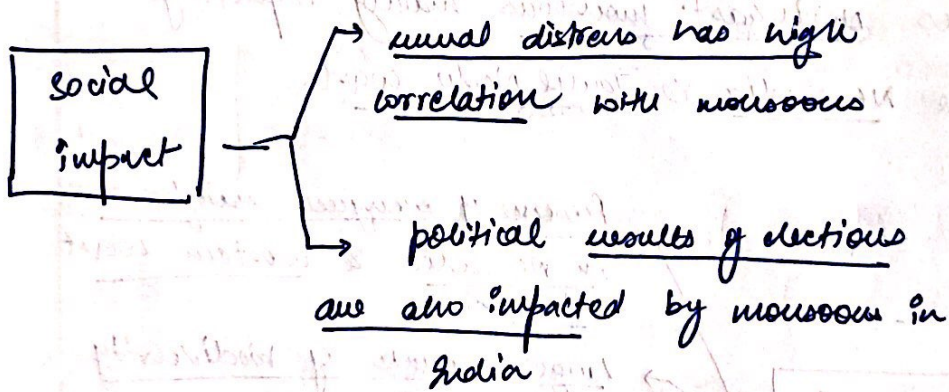 social
impact
rural distress has high
correlation with monsoons
political results of elections
are also impacted by monsoons in
India